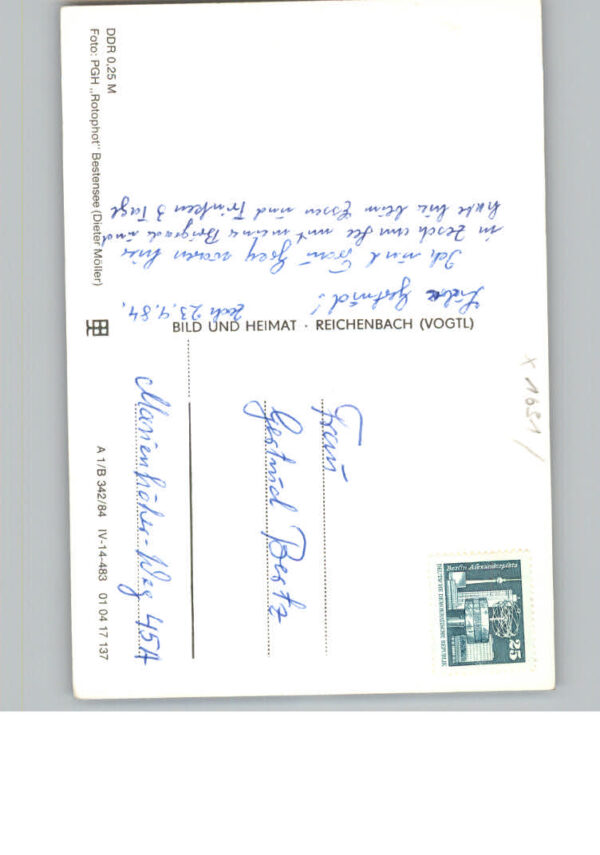 23.9.84,
Liebe Gertrud!
Ich und Frau waren hier
in Zesch am See mit meiner Brigade und
habe hier beim Essen und Trinken 3 Tage
DDR 0,25 M
Foto: PGH „Rotophot“ Bestensee (Dieter Möller)
BILD UND HEIMAT · REICHENBACH (VOGTL)
A 1/B 342/84 IV-14-483 01 04 17 137
Berlin Alexanderplatz
25
DEUTSCHE DEMOKRATISCHE REPUBLIK
Frau
Gertrud Bertz
Marienhöher-Weg 45A